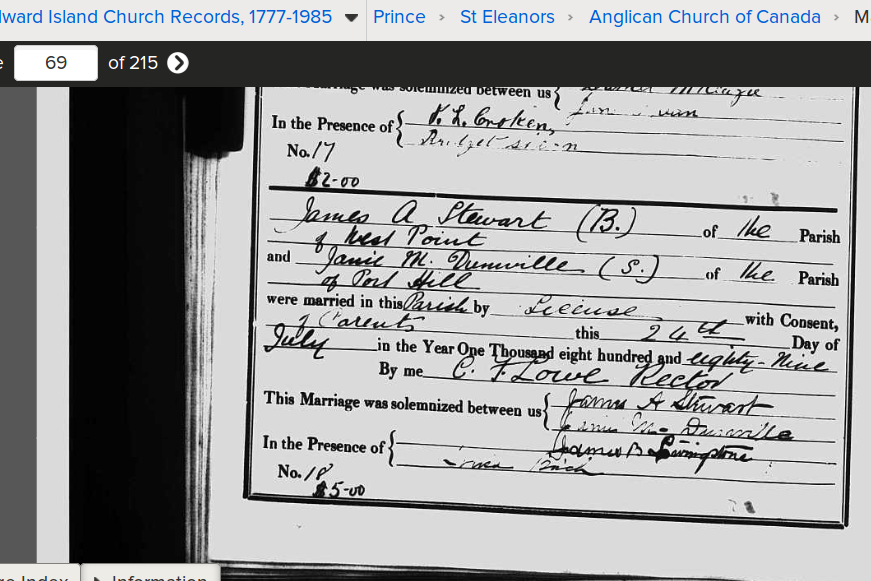 ward Island Church Records, 1777-1985 Prince › St Eleanors › Anglican Church of Canada › M
e 69 of 215
Marriage was solemnized between us
In the Presence of P. L. Croken,
No. 17
$2-00
James A Stewart (B.) of the Parish
of West Point
and Janie M. Dumville (S.) of the Parish
of Port Hill
were married in this Parish by License with Consent,
of Parents this 24th Day of
July in the Year One Thousand eight hundred and eighty-Nine
By me C. F Lowe Rector
This Marriage was solemnized between us James A Stewart
Janie M. Dumville
In the Presence of James B Livingstone
No. 18
$5-00
ge Index Information